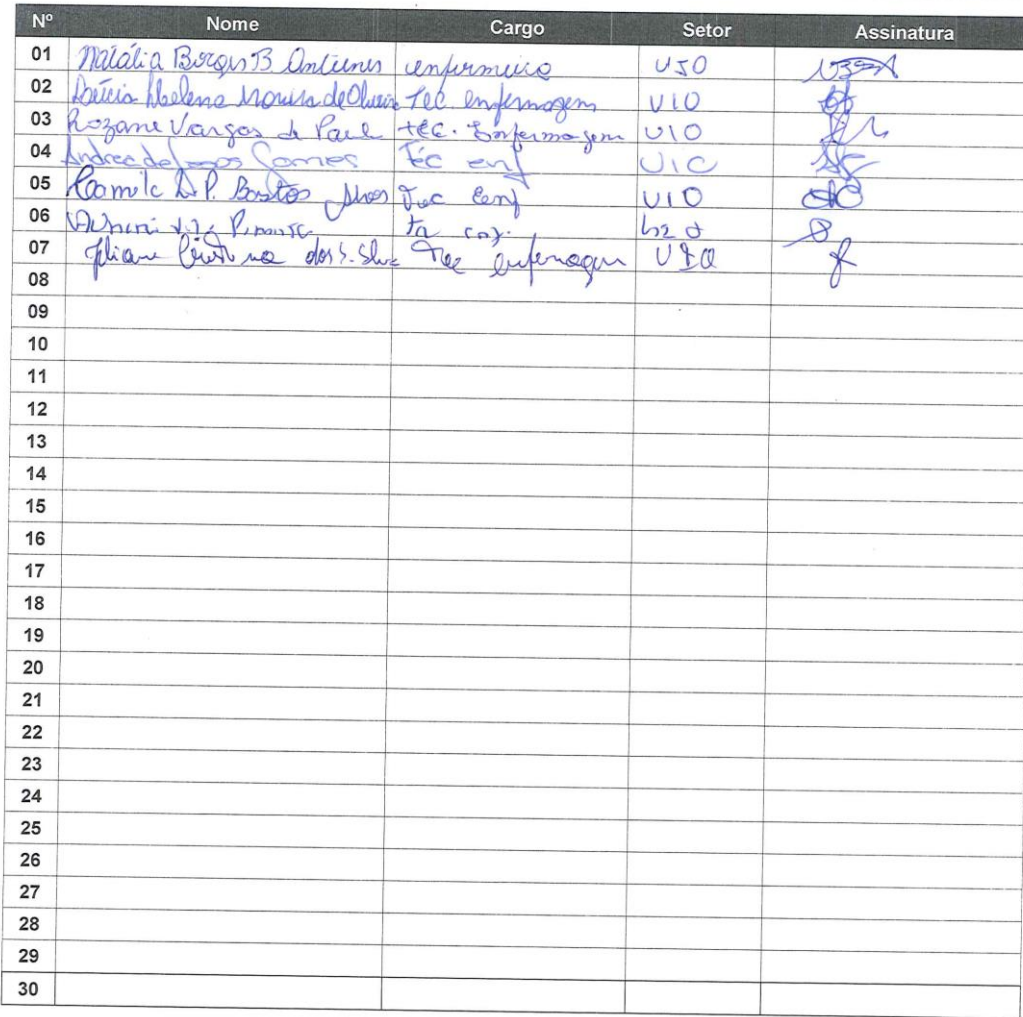 Nº Nome Cargo Setor Assinatura
01 Natália Borges B Antunes enfermeira UIO
02 Helena Moura de Oliveira Tec. enfermagem UIO
03 Rozane Vargas de Paul téc. Enfermagem UIO
04 Andrea de Gomes Téc enf UIO
05 Camila D. P. Bastos Tec Enf UIO
06
07 dos S. Silva Tec enfermagem UIO
08
09
10
11
12
13
14
15
16
17
18
19
20
21
22
23
24
25
26
27
28
29
30